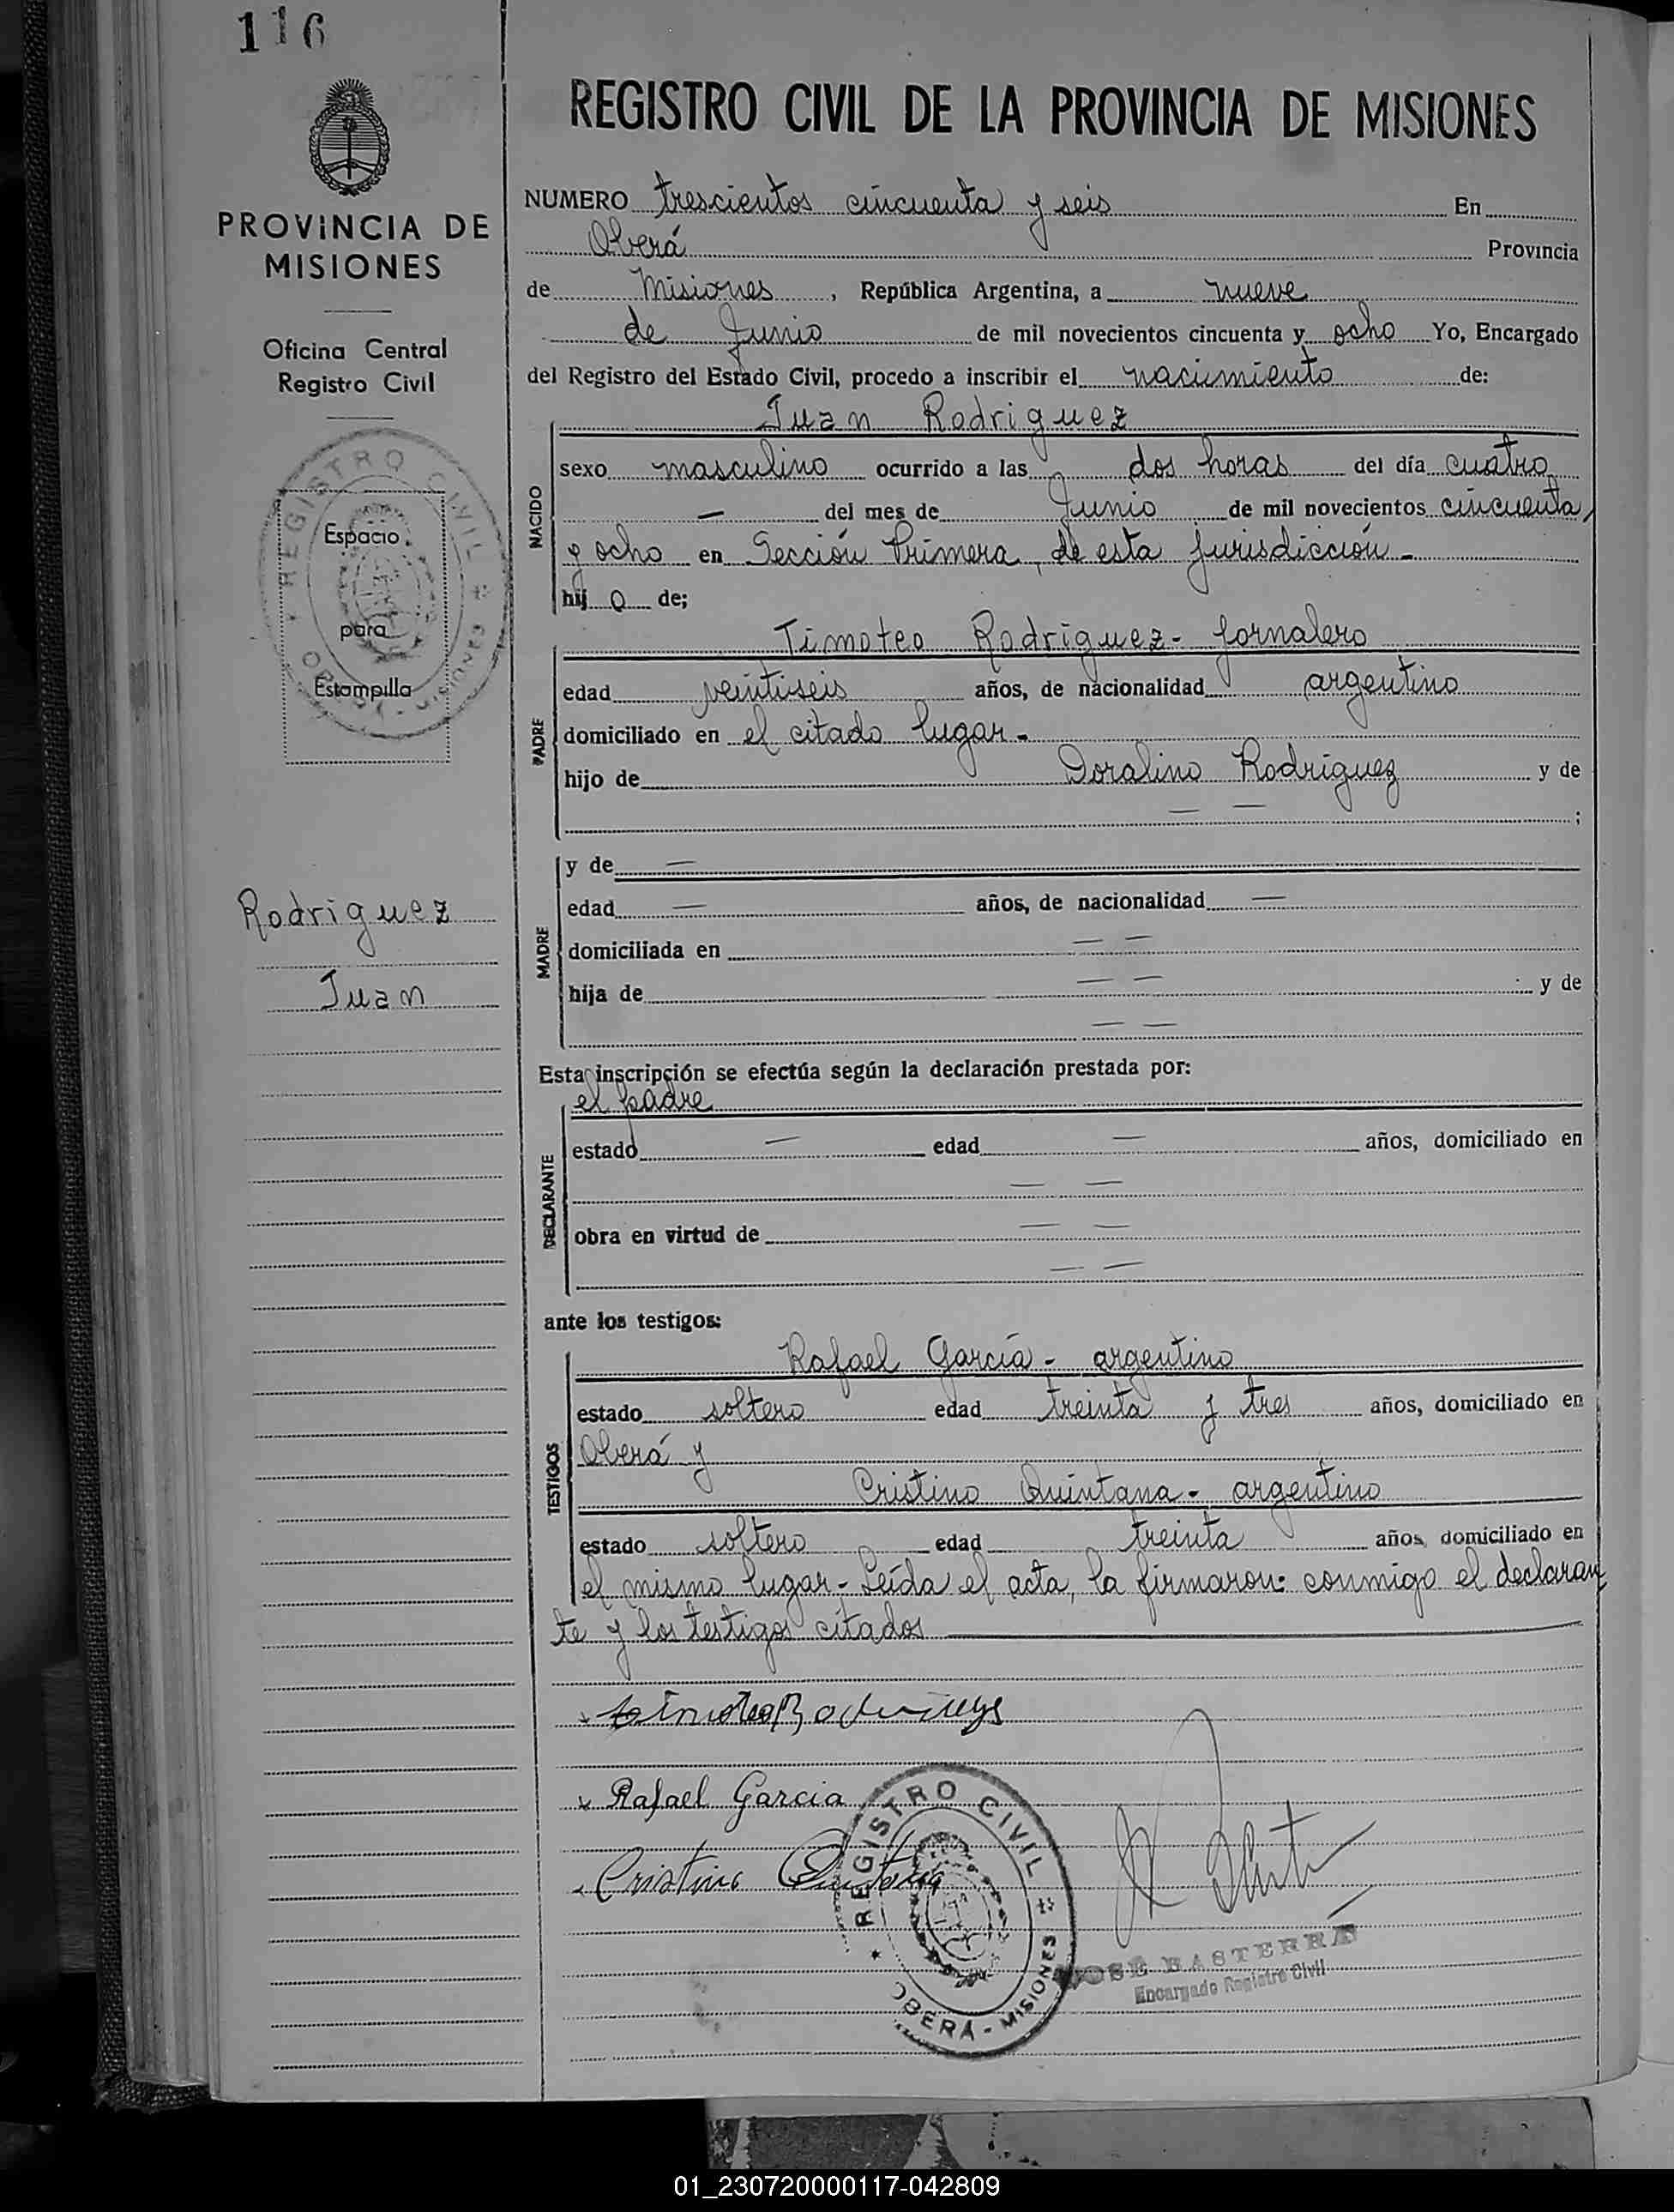 116
PROVINCIA DE
MISIONES
Oficina Central
Registro Civil
REGISTRO CIVIL
Espacio
para
Estampilla
Rodriguez
Juan
REGISTRO CIVIL DE LA PROVINCIA DE MISIONES
NUMERO trescientos cincuenta y seis En
Oberá Provincia
de Misiones, República Argentina, a nueve
de Junio de mil novecientos cincuenta y ocho Yo, Encargado
del Registro del Estado Civil, procedo a inscribir el nacimiento de:
Juan Rodriguez
NACIDO
sexo masculino ocurrido a las dos horas del día cuatro
— del mes de Junio de mil novecientos cincuenta
y ocho en Sección Primera, de esta jurisdicción -
hij o de;
Timoteo Rodriguez - jornalero
PADRE
edad veintiseis años, de nacionalidad argentino
domiciliado en el citado lugar -
hijo de Doralino Rodriguez y de
— — ;
MADRE
y de —
edad — años, de nacionalidad —
domiciliada en — —
hija de — — y de
— —
Esta inscripción se efectúa según la declaración prestada por:
el padre
DECLARANTE
estado — edad — años, domiciliado en
— —
obra en virtud de — —
— —
ante los testigos:
Rafael García - argentino
TESTIGOS
estado soltero edad treinta y tres años, domiciliado en
Oberá y
Cristino Quintana - argentino
estado soltero edad treinta años, domiciliado en
el mismo lugar - Leída el acta, la firmaron: conmigo el declaran
te y los testigos citados
Rafael Garcia
Cristino Quintana
REGISTRO CIVIL
OBERÁ - MISIONES
JOSE BASTERRA
Encargado Registro Civil
01_230720000117-042809